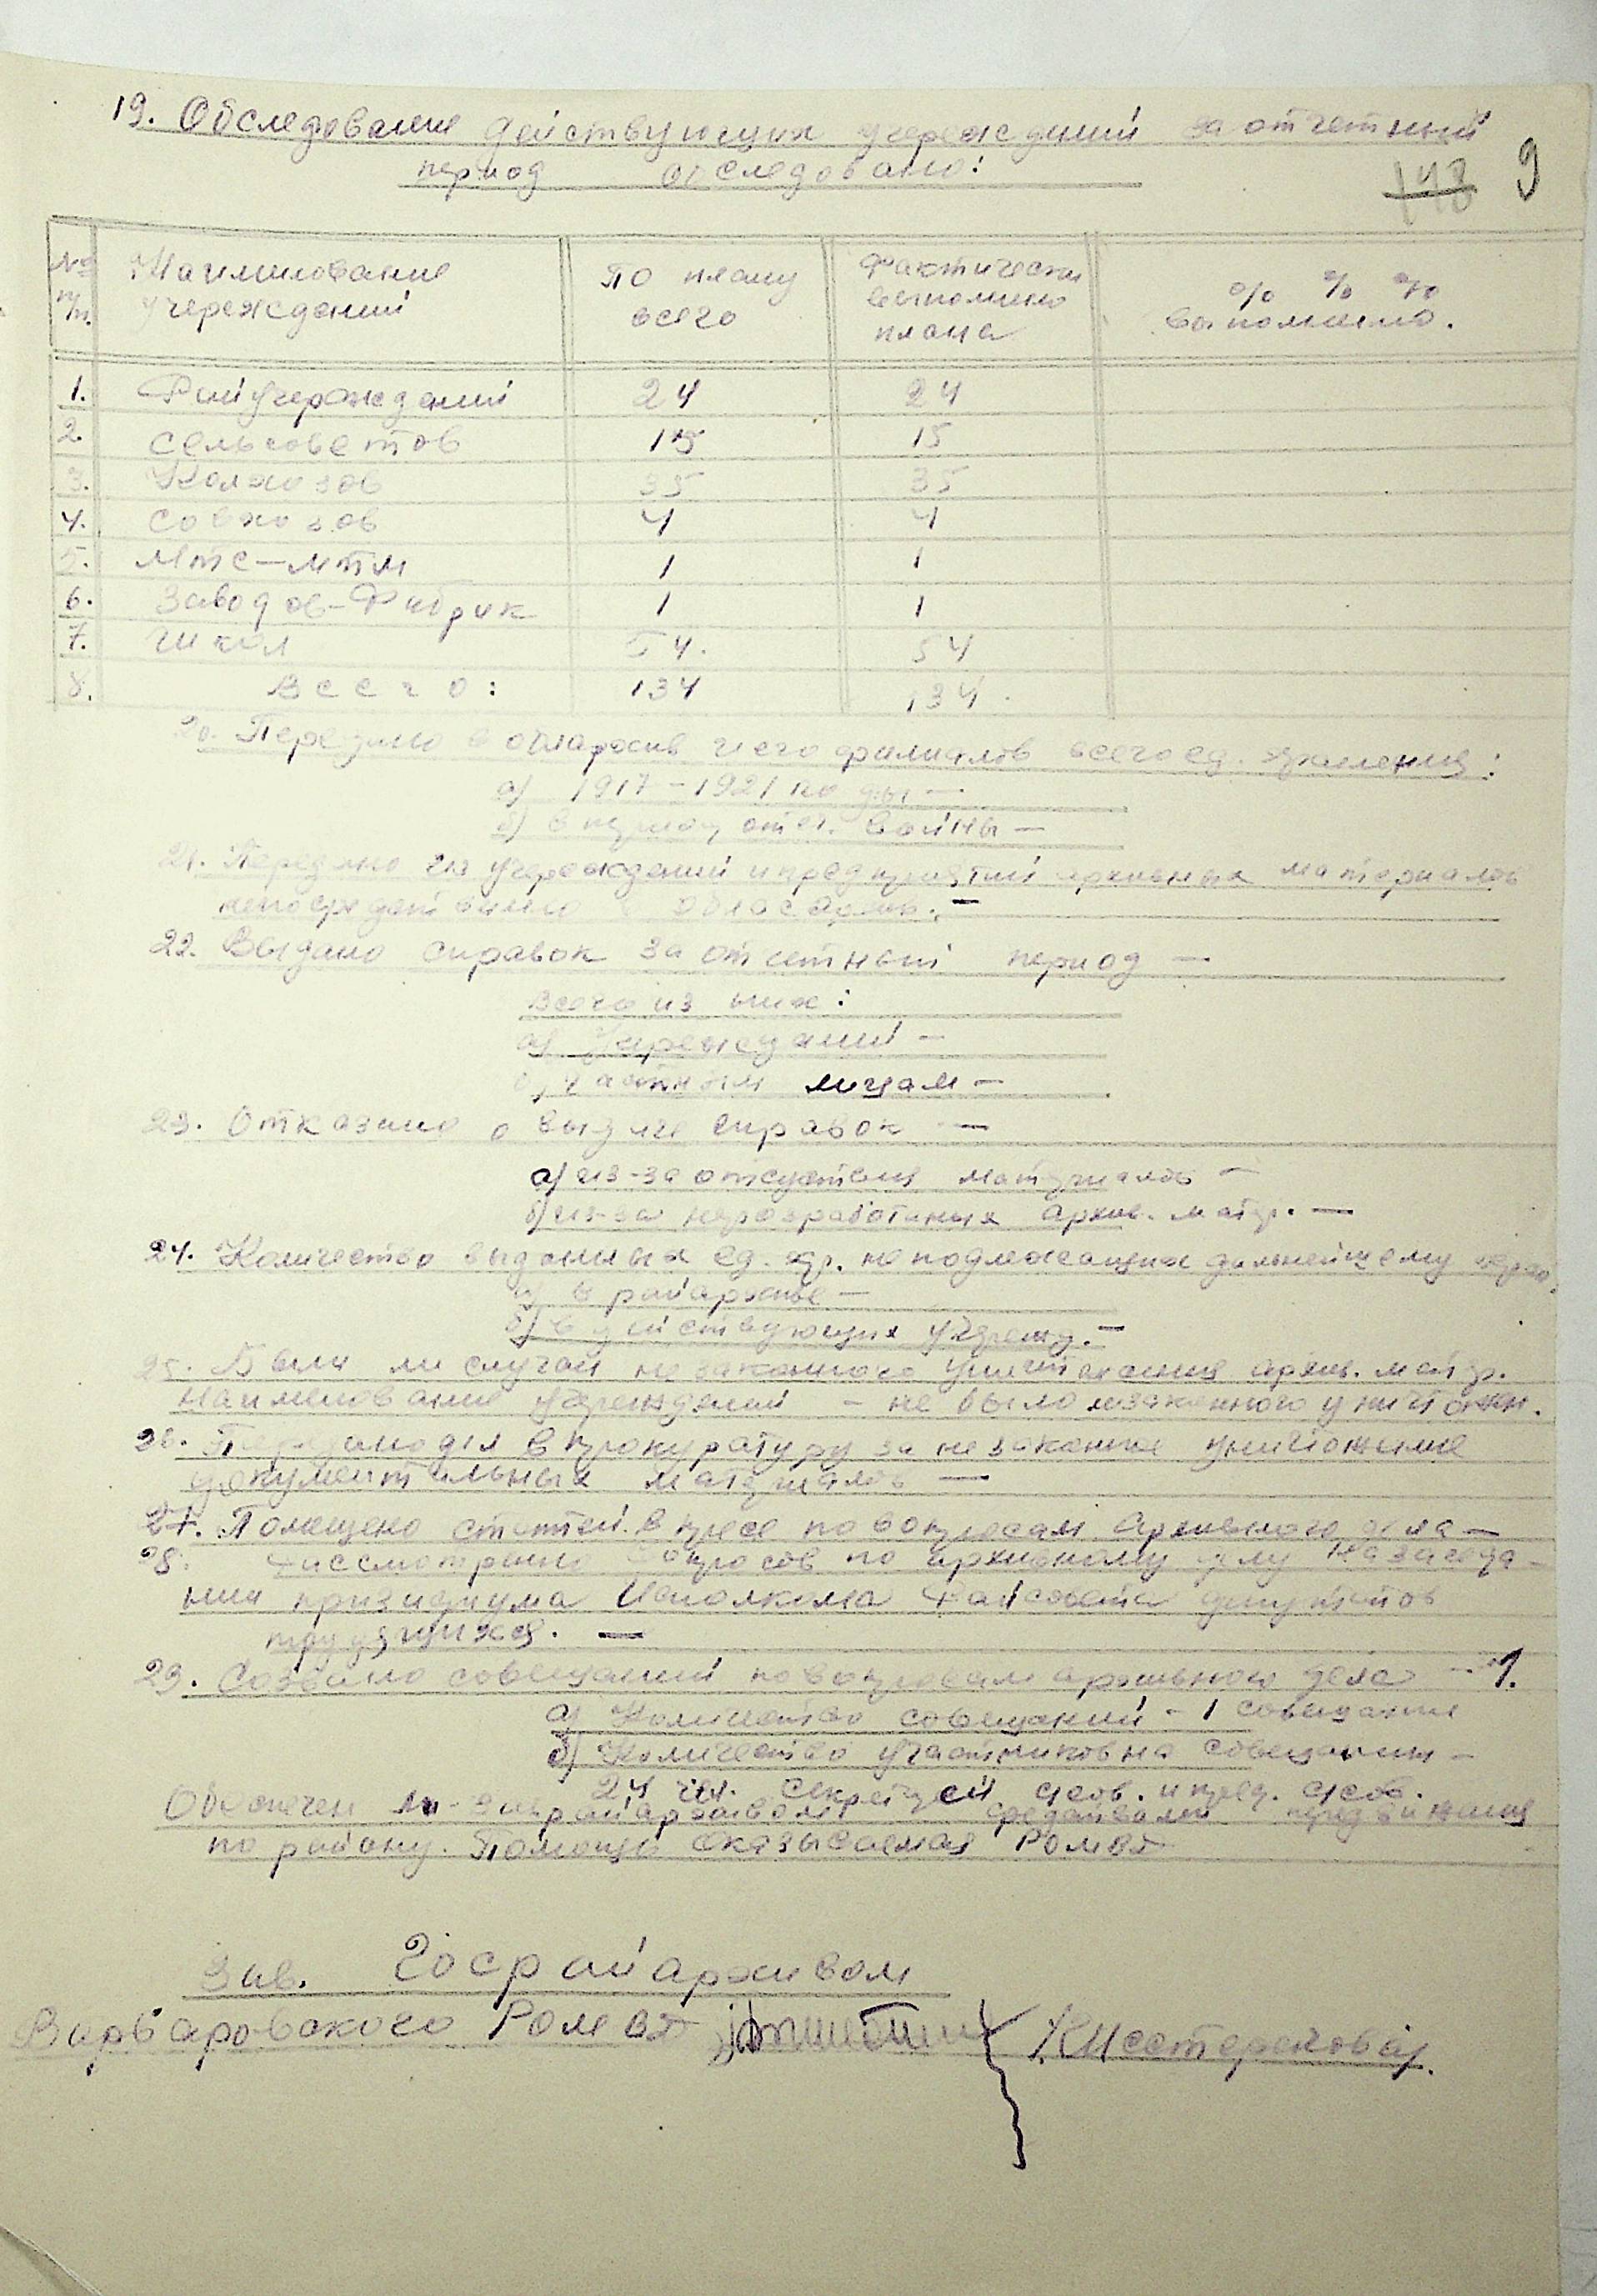 19. Обследование действующих учереждений за отчетный
период обследовано:
148 9
№ п/п. Наиминование учереждений По плану всего Фактически выполнено плана % % % выполнено.
1. Райучереждений 24 24
2. Сельсоветов 15 15
3. Колхозов 35 35
4. Совхозов 4 4
5. Мтс-мтм 1 1
6. Заводов-Фабрик 1 1
7. Школ 54. 54
8. Всего: 134 134.
20. Передано в облархив и его филиалов всего ед. хранения:
а) 1917-1921 годы —
б) в период отеч. войны —
21. Передано из учереждений и предприятий архивных материалов
непосредственно в обласархив. —
22. Выдано справок за отчетный период —
Всего из них:
а) Учреждений —
б) частным лицам —
23. Отказано о выдаче справок —
а) из-за отсуствия материалов —
б) из-за неразработаных архив. матер. —
24. Количество выданных ед. хр. не подлежащих дальнейшему хран.
а) в райархиве —
б) в действующих учрежд. —
25. Были ли случаи не законного уничтожения архив. матер.
Наименование учреждений — не было незаконного уничтожен.
26. Передано дел в прокуратуру за не законное уничтожение
документальных материалов —
27. Помещено статтей в пресе по вопросам архивного дела —
28. Рассмотренно вопросов по архивному делу на заседа-
нии призидиума Исполкома Райсовета депутатов
трудящихся. —
29. Созвано совещаний по вопросам архивного дела — 1.
а) Количество совещаний - 1 совещание
б) Количество участников на совещании —
24 чел. секретарей
Обеспечен ли зав. райархивом средствами передвижения
по району. Помощь оказываемая РОМВД
Зав. Госрайархивом
Варваровского РОМВД Нестеренкова/.